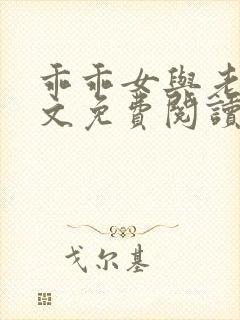 乖乖女與老
文免費閱讀
戈尔基